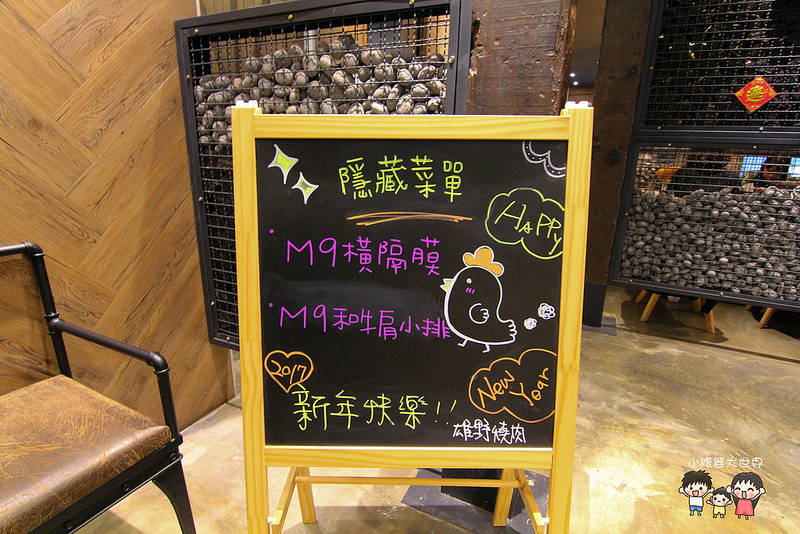 隱藏菜單
HAPPY
M9橫隔膜
M9和牛肩小排
2017
New Year
新年快樂!!
雄野燒肉
小腹婆大世界